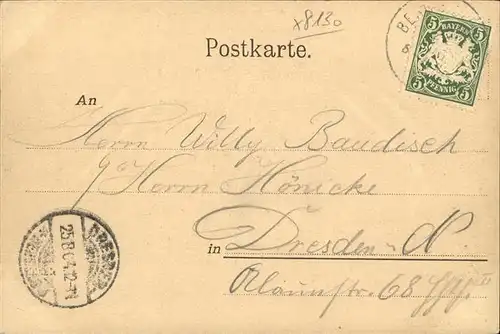 x8130
Postkarte.
BAYERN
5 5
5 PFENNIG 5
BE
An
Herrn Willy Baudisch
Herrn Hönicke
in Dresden-N.
Alaunstr. 68
DRESDEN
25.8.04.12-1N